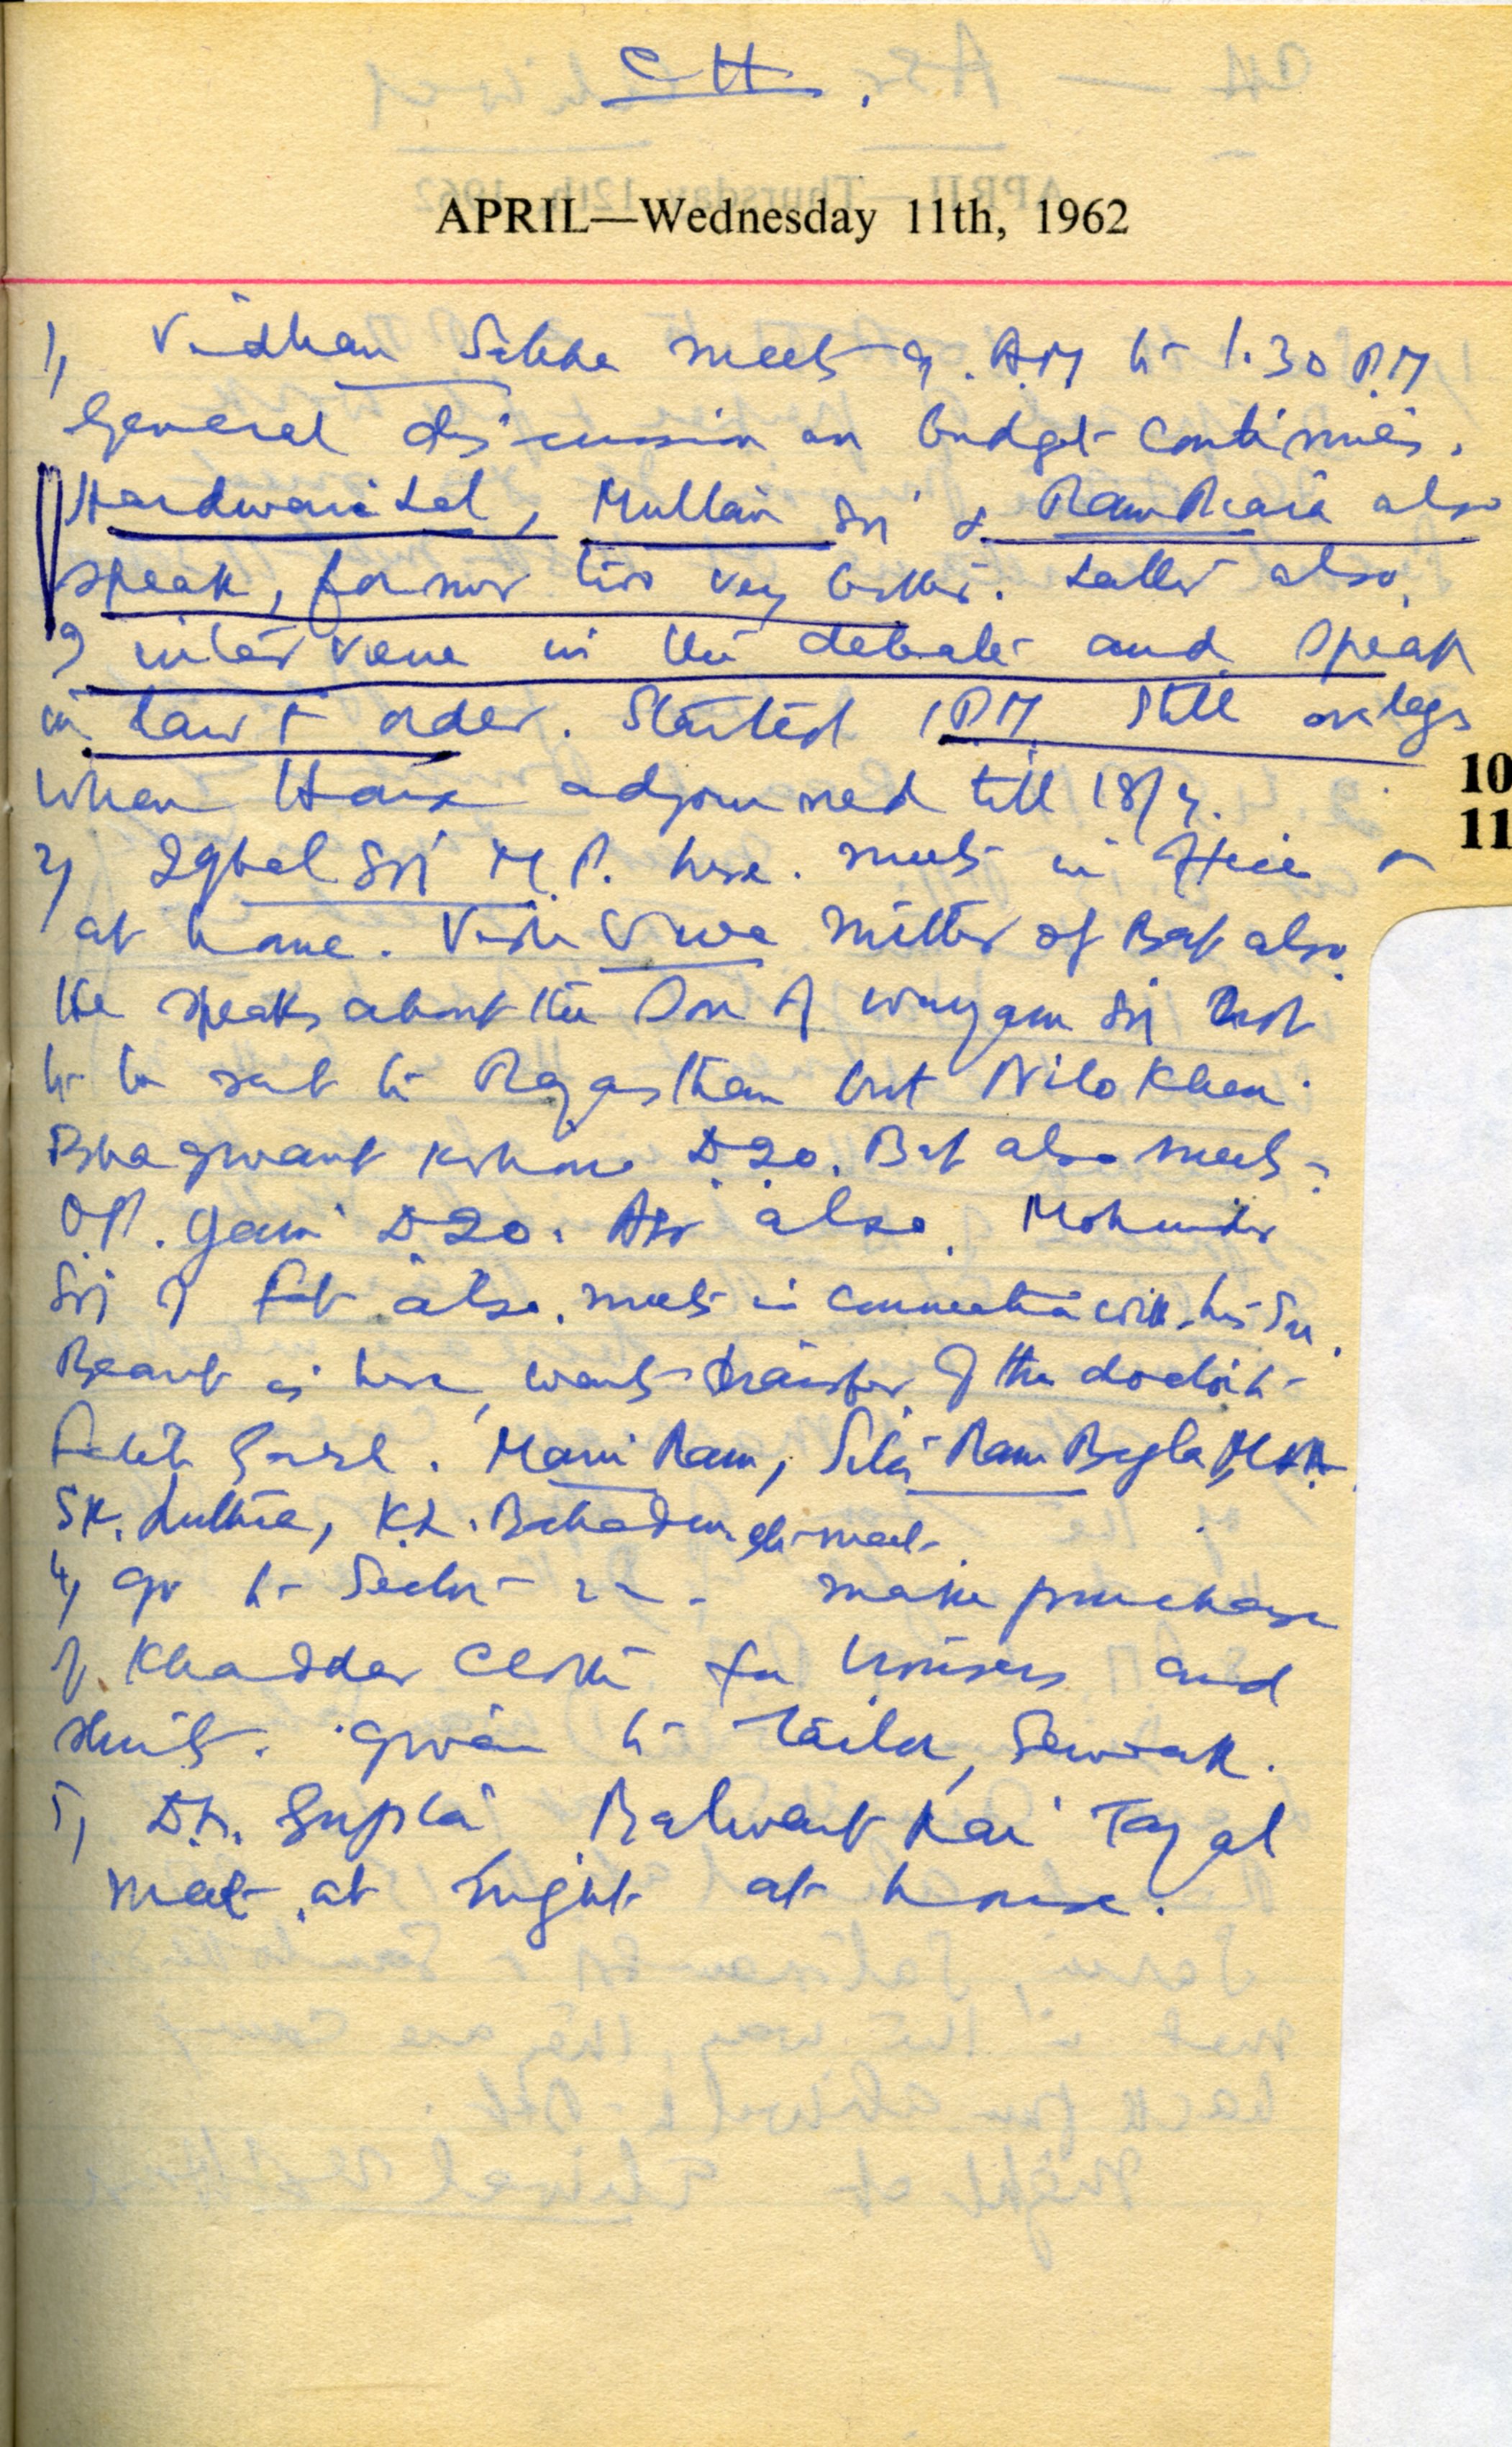 CH.
APRIL—Wednesday 11th, 1962
1, Vidhan Sabha meets 9. A.M to 1.30 P.M
General discussion on budget continues.
Hardwari Lal, Mullan Sri & Ram Piara also
speak, former two very bitter. Latter also,
I intervene in the debate and speak
in Law & order. Started 1 P.M. still on legs
when House adjourned till 18/4.
2, Iqbal Sri M.P. here. meets in office &
at home. Vishwa Mitter of Bat also
He speaks about the Son of Waryam Sri not
to be sent to Rajasthan but Nilo Kheri.
Bhagwant Kishore D20. Bat also meets.
O.P. D20. Asr also. Mohinder
Sri of Fat also. meets in connection with his Son.
Beant is here, wants transfer of the doctor to
Fateh Garh. Mani Ram, Sita Ram Bagla MLA
S.K. Luthra, K.L. Bahadur etc meet.
4, go to Sector 22. make purchase
of Khaddar Cloth for trousers and
shirts. given to Tailor, Sewak.
5, Dr. Gupta, Balwant Rai Tayal
meet at night at house.
10
11